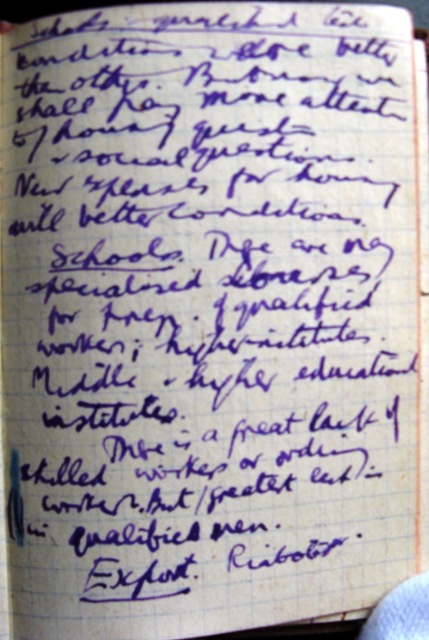 Schools.
conditions were better
the other. But now we
shall pay more attention
to housing quest
& social questions.
New expenses for housing
will better conditions.
Schools. There are many
specialised
for prep. of qualified
workers; higher institutes.
Middle & higher educational
institutes.
There is a great lack of
skilled workers or ordinary
workers. But greatest lack is
in qualified men.
Export.